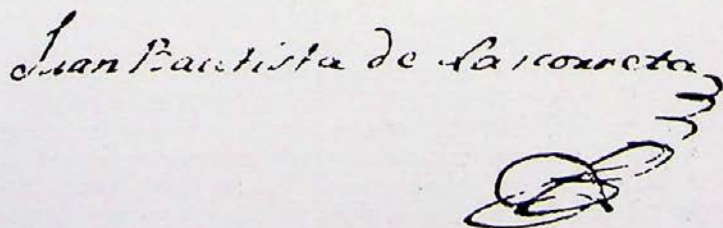 Juan Bautista de Lascorreta